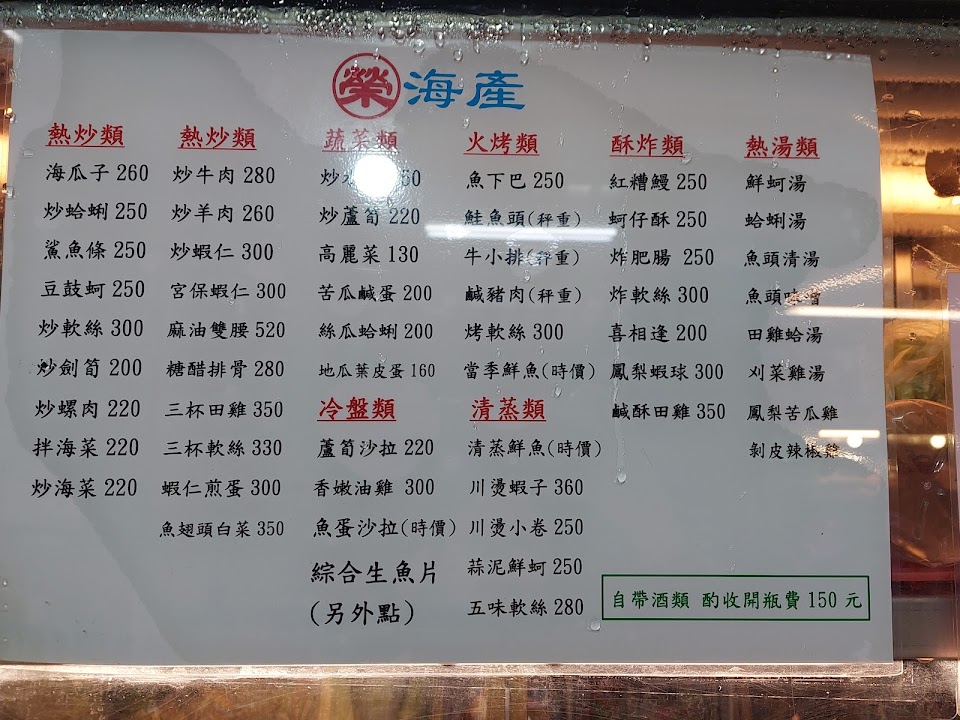 榮海產
熱炒類
海瓜子 260
炒蛤蜊 250
鯊魚條 250
豆鼓蚵 250
炒軟絲 300
炒劍筍 200
炒螺肉 220
拌海菜 220
炒海菜 220
熱炒類
炒牛肉 280
炒羊肉 260
炒蝦仁 300
宮保蝦仁 300
麻油雙腰 520
糖醋排骨 280
三杯田雞 350
三杯軟絲 330
蝦仁煎蛋 300
魚翅頭白菜 350
蔬菜類
炒
炒蘆筍 220
高麗菜 130
苦瓜鹹蛋 200
絲瓜蛤蜊 200
地瓜葉皮蛋 160
冷盤類
蘆筍沙拉 220
香嫩油雞 300
魚蛋沙拉(時價)
綜合生魚片
(另外點)
火烤類
魚下巴 250
鮭魚頭(秤重)
牛小排(秤重)
鹹豬肉(秤重)
烤軟絲 300
當季鮮魚(時價)
清蒸類
清蒸鮮魚(時價)
川燙蝦子 360
川燙小卷 250
蒜泥鮮蚵 250
五味軟絲 280
酥炸類
紅糟鰻 250
蚵仔酥 250
炸肥腸 250
炸軟絲 300
喜相逢 200
鳳梨蝦球 300
鹹酥田雞 350
熱湯類
鮮蚵湯
蛤蜊湯
魚頭清湯
魚頭味噌
田雞蛤湯
刈菜雞湯
鳳梨苦瓜雞
剝皮辣椒雞
自帶酒類 酌收開瓶費 150 元